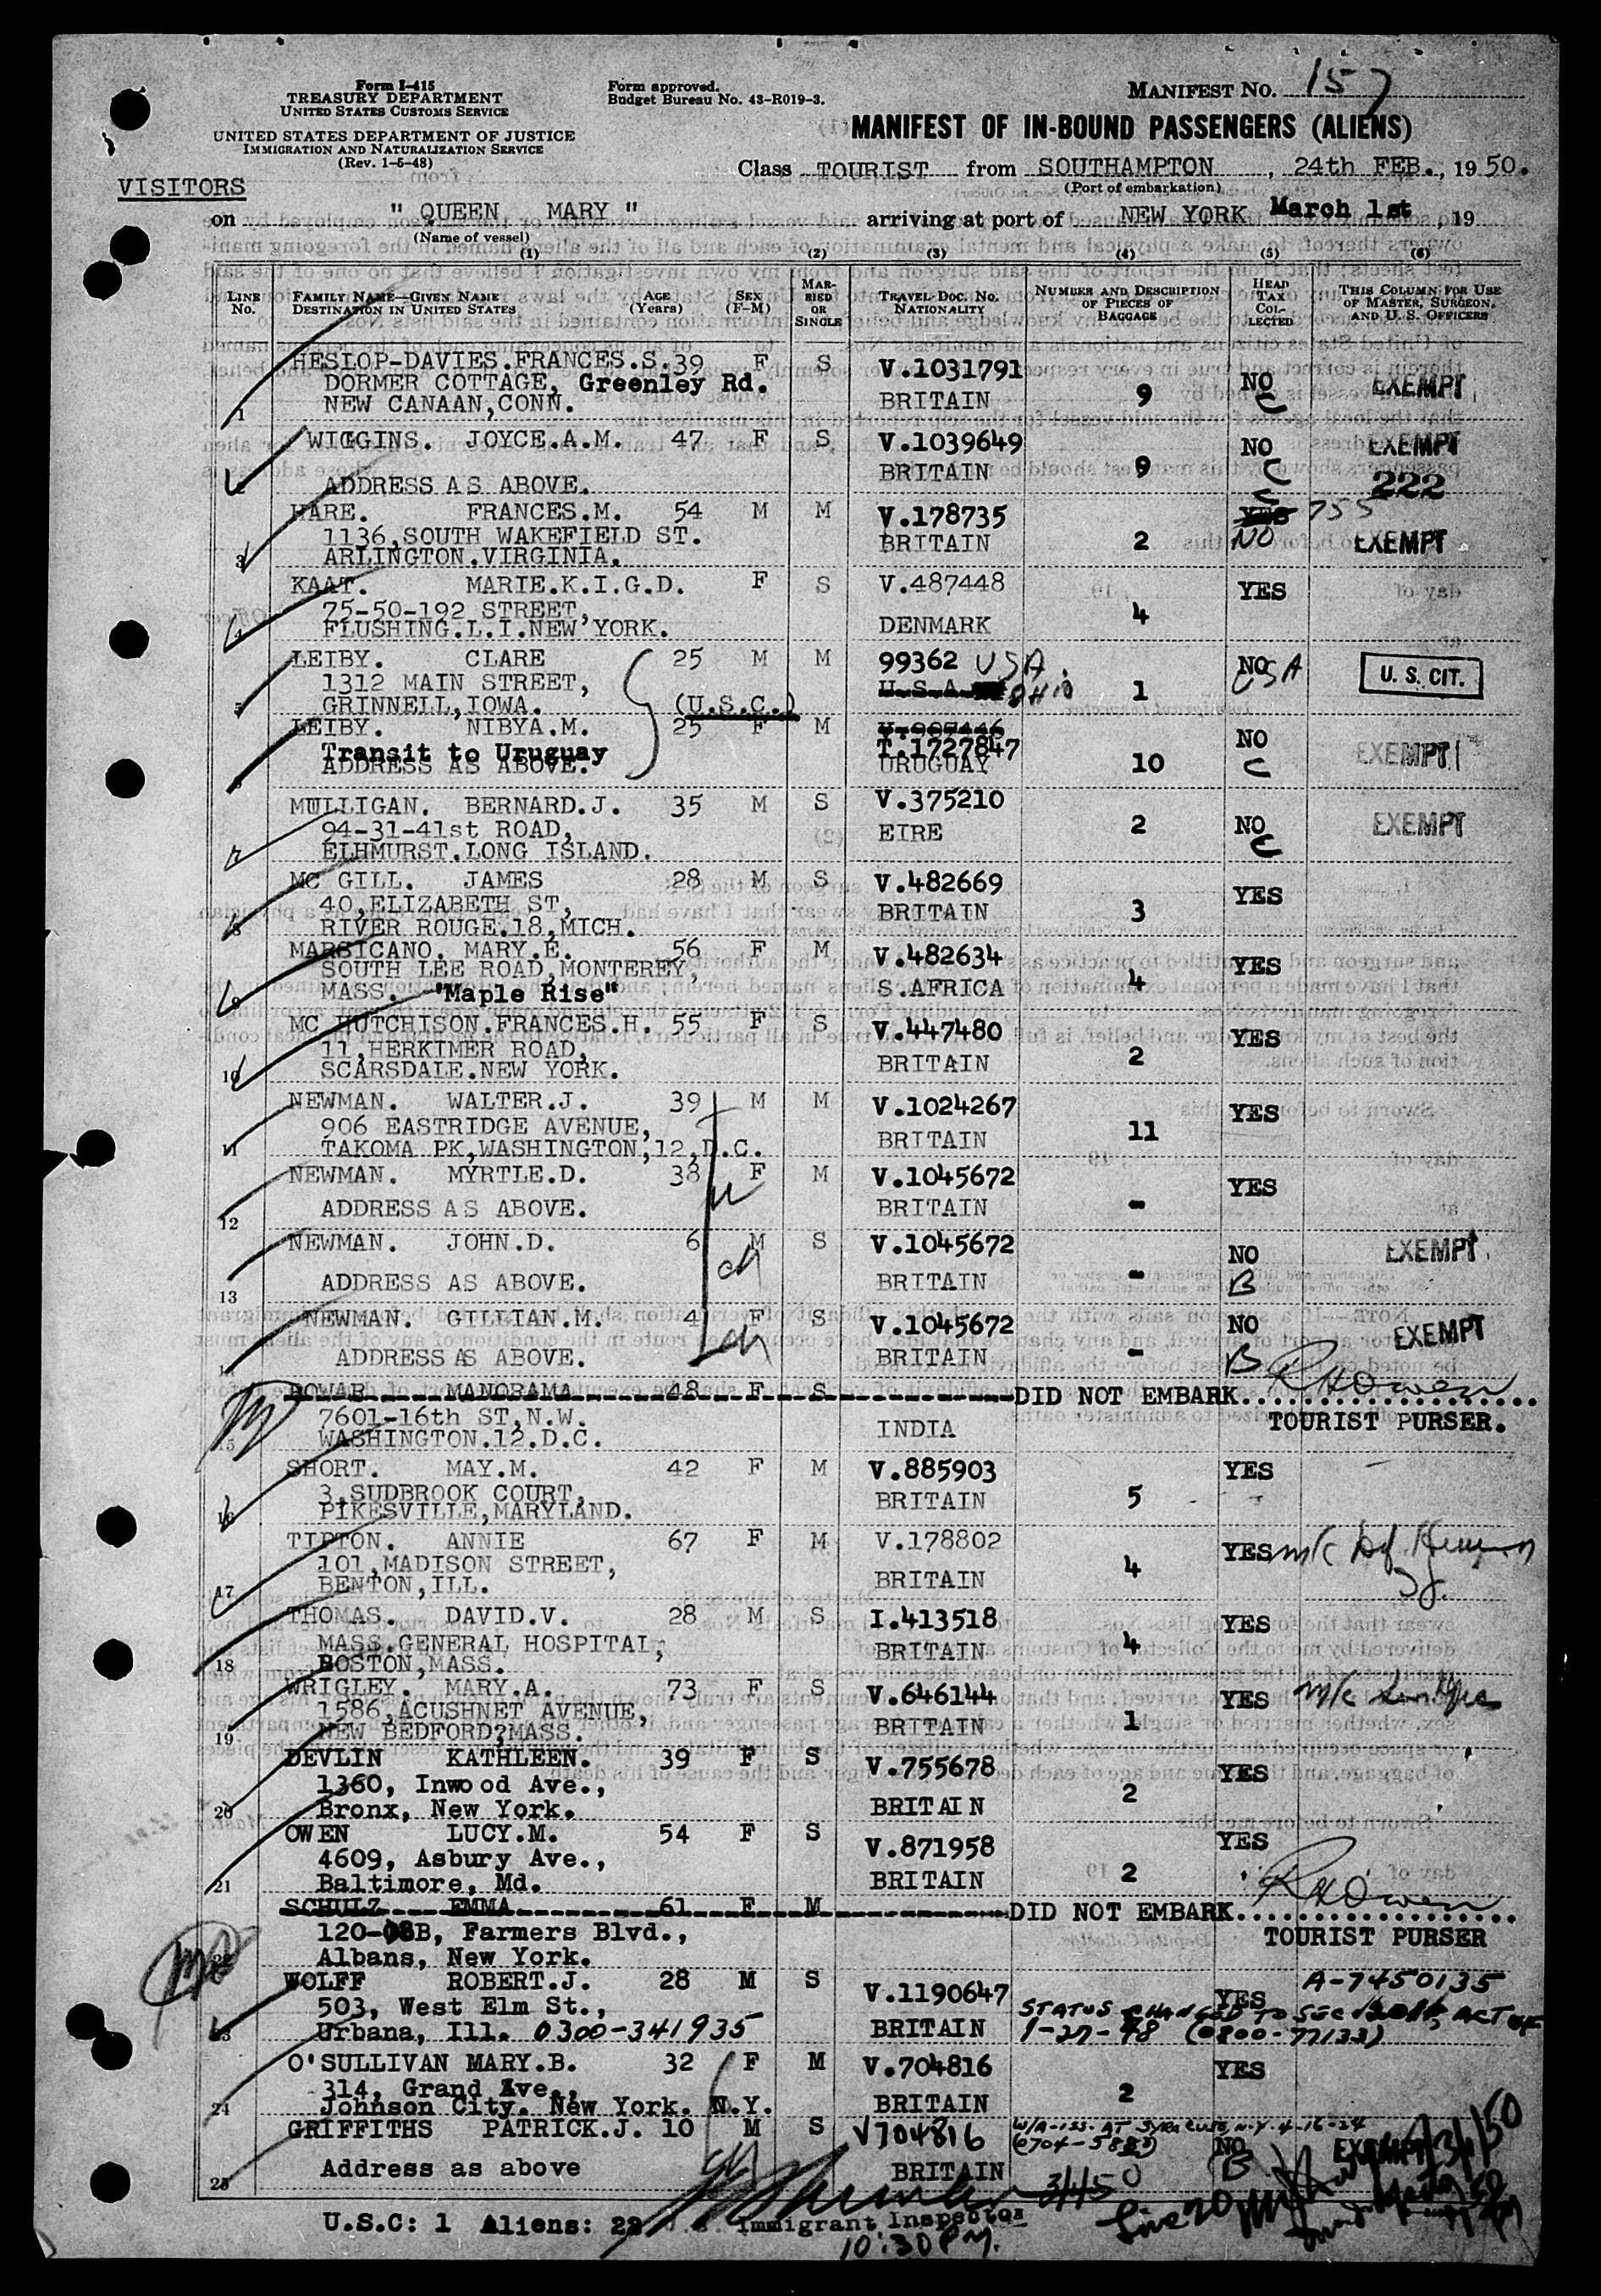 Form I-415
TREASURY DEPARTMENT
UNITED STATES CUSTOMS SERVICE
UNITED STATES DEPARTMENT OF JUSTICE
IMMIGRATION AND NATURALIZATION SERVICE
(Rev. 1-5-48)
Form approved.
Budget Bureau No. 43-R019-3.
MANIFEST NO. 157
MANIFEST OF IN-BOUND PASSENGERS (ALIENS)
Class TOURIST from SOUTHAMPTON, 24th FEB., 1950.
(Port of embarkation)
VISITORS
on " QUEEN MARY " arriving at port of NEW YORK March 1st, 19
(Name of vessel)
(1) (2) (3) (4) (5) (6)
LINE NO. FAMILY NAME—GIVEN NAME DESTINATION IN UNITED STATES AGE (Years) SEX (F-M) MARRIED OR SINGLE TRAVEL DOC. NO. NATIONALITY NUMBER AND DESCRIPTION OF PIECES OF BAGGAGE HEAD TAX COLLECTED THIS COLUMN FOR USE OF MASTER, SURGEON, AND U. S. OFFICERS
HESLOP-DAVIES.FRANCES.S. 39 F S V.1031791
DORMER COTTAGE, Greenley Rd. 9 NO EXEMPT
NEW CANAAN,CONN. BRITAIN C
1
WIGGINS. JOYCE.A.M. 47 F S V.1039649 NO EXEMPT
BRITAIN 9 C
ADDRESS AS ABOVE. 222
HARE. FRANCES.M. 54 M M V.178735 C YES 755
1136,SOUTH WAKEFIELD ST. BRITAIN 2 NO EXEMPT
3 ARLINGTON.VIRGINIA.
KAAT. MARIE.K.I.G.D. F S V.487448 YES
75-50-192 STREET, 4
4 FLUSHING.L.I.NEW YORK. DENMARK
LEIBY. CLARE 25 M M 99362 USA NO USA
1312 MAIN STREET, U.S.A. OHIO 1 U. S. CIT.
5 GRINNELL,IOWA. (U.S.C.)
LEIBY. NIBYA.M. 25 F M V.907446 NO EXEMPT
Transit to Uruguay T.1727847
ADDRESS AS ABOVE. URUGUAY 10 C
MULLIGAN. BERNARD.J. 35 M S V.375210
94-31-41st ROAD, EIRE 2 NO EXEMPT
7 ELHMURST.LONG ISLAND. C
MC GILL. JAMES 28 M S V.482669 YES
40,ELIZABETH ST, BRITAIN 3
8 RIVER ROUGE.18,MICH.
MARSICANO. MARY.E. 56 F M V.482634 YES
SOUTH LEE ROAD,MONTEREY, 4
9 MASS. "Maple Rise" S.AFRICA
MC HUTCHISON.FRANCES.H. 55 F S V.447480 YES
11,HERKIMER ROAD, 2
10 SCARSDALE.NEW YORK. BRITAIN
NEWMAN. WALTER.J. 39 M M V.1024267 YES
906 EASTRIDGE AVENUE, 11
11 TAKOMA PK,WASHINGTON,12,D.C. BRITAIN
NEWMAN. MYRTLE.D. 38 F M V.1045672 YES
12 ADDRESS AS ABOVE. BRITAIN -
NEWMAN. JOHN.D. 6 M S V.1045672 NO EXEMPT
13 ADDRESS AS ABOVE. BRITAIN - B
NEWMAN. GILLIAN.M. 4 F S V.1045672 NO EXEMPT
ADDRESS AS ABOVE. BRITAIN - B
MANORAMA 48 F S DID NOT EMBARK. RHOwen
7601-16th ST,N.W. INDIA TOURIST PURSER.
15 WASHINGTON.12.D.C.
SHORT. MAY.M. 42 F M V.885903 YES
3,SUDBROOK COURT, BRITAIN 5
16 PIKESVILLE,MARYLAND.
TIPTON. ANNIE 67 F M V.178802 YES
101,MADISON STREET, 4
17 BENTON,ILL. BRITAIN
THOMAS. DAVID.V. 28 M S I.413518 YES
MASS.GENERAL HOSPITAL, BRITAIN 4
18 BOSTON,MASS.
WRIGLEY. MARY.A. 73 F S V.646144 YES
1586,ACUSHNET AVENUE, 1
19 NEW BEDFORD?MASS. BRITAIN
DEVLIN KATHLEEN. 39 F S V.755678 YES
1360, Inwood Ave., 2
20 Bronx, New York. BRITAIN
OWEN LUCY.M. 54 F S V.871958 YES
4609, Asbury Ave., 2
21 Baltimore, Md. BRITAIN
SCHULZ EMMA 61 F M DID NOT EMBARK. RHOwen
120-08B, Farmers Blvd., TOURIST PURSER
Albans, New York.
WOLFF ROBERT.J. 28 M S V.1190647 YES A-7450135
503, West Elm St., STATUS CHANGED TO SEC ACT OF
23 Urbana, Ill. 0300-341935 BRITAIN 1-27-48 (0800-77133)
O'SULLIVAN MARY.B. 32 F M V.704816 YES
314, Grand Ave., 2
24 Johnson City. New York. N.Y. BRITAIN
GRIFFITHS PATRICK.J. 10 M S V704816 W/A-ISS. AT SYRACUSE, N.Y. 4-16-54 NO EXEMPT
25 Address as above BRITAIN B
U.S.C: 1 Aliens: 22 Immigrant Inspector
10:30 PM.